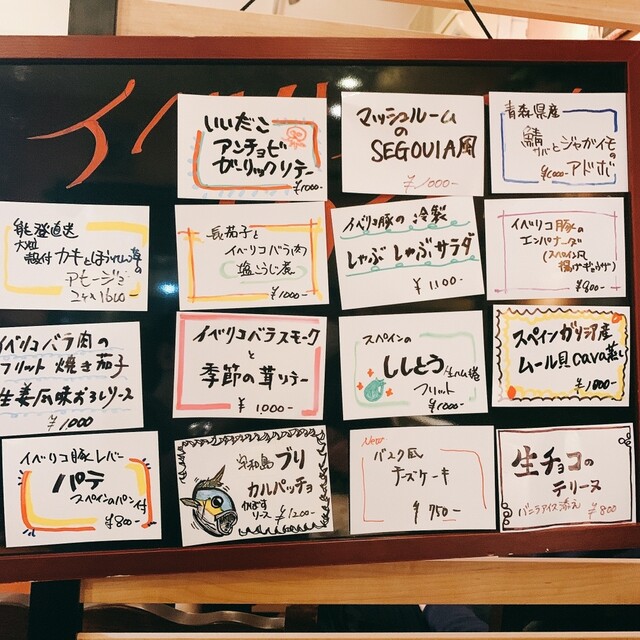 イベリ
いいだこ
アンチョビ
ガーリックソテー
¥1000-
マッシュルーム
の
SEGOVIA風
¥1000-
青森県産
鯖とジャガイモの
サバ
アドボ
¥1000-
能登直送
大粒
殻付カキとほうれん草の
アヒージョ
2ケ¥1600-
長茄子と
イベリコバラ肉
塩こうじ煮
¥1000-
イベリコ豚の冷製
しゃぶしゃぶサラダ
¥1100-
イベリコ豚の
エンパナーダ
(スペイン風
揚げギョウザ)
¥900-
イベリコバラ肉の
フリット焼き茄子
生姜風味おろしソース
¥1000
イベリコベラスモーク
と
季節の茸ソテー
¥1000-
スペインの
ししとう生ハム巻
フリット
¥1000-
スペインガリシア産
ムール貝cava蒸し
¥1000-
イベリコ豚レバー
パテ
スペインのパン付
¥800-
ブリ
カルパッチョ
かぼす
ソース ¥1200-
New
バスク風
チーズケーキ
¥750-
生チョコの
テリーヌ
バニラアイス添え
¥800